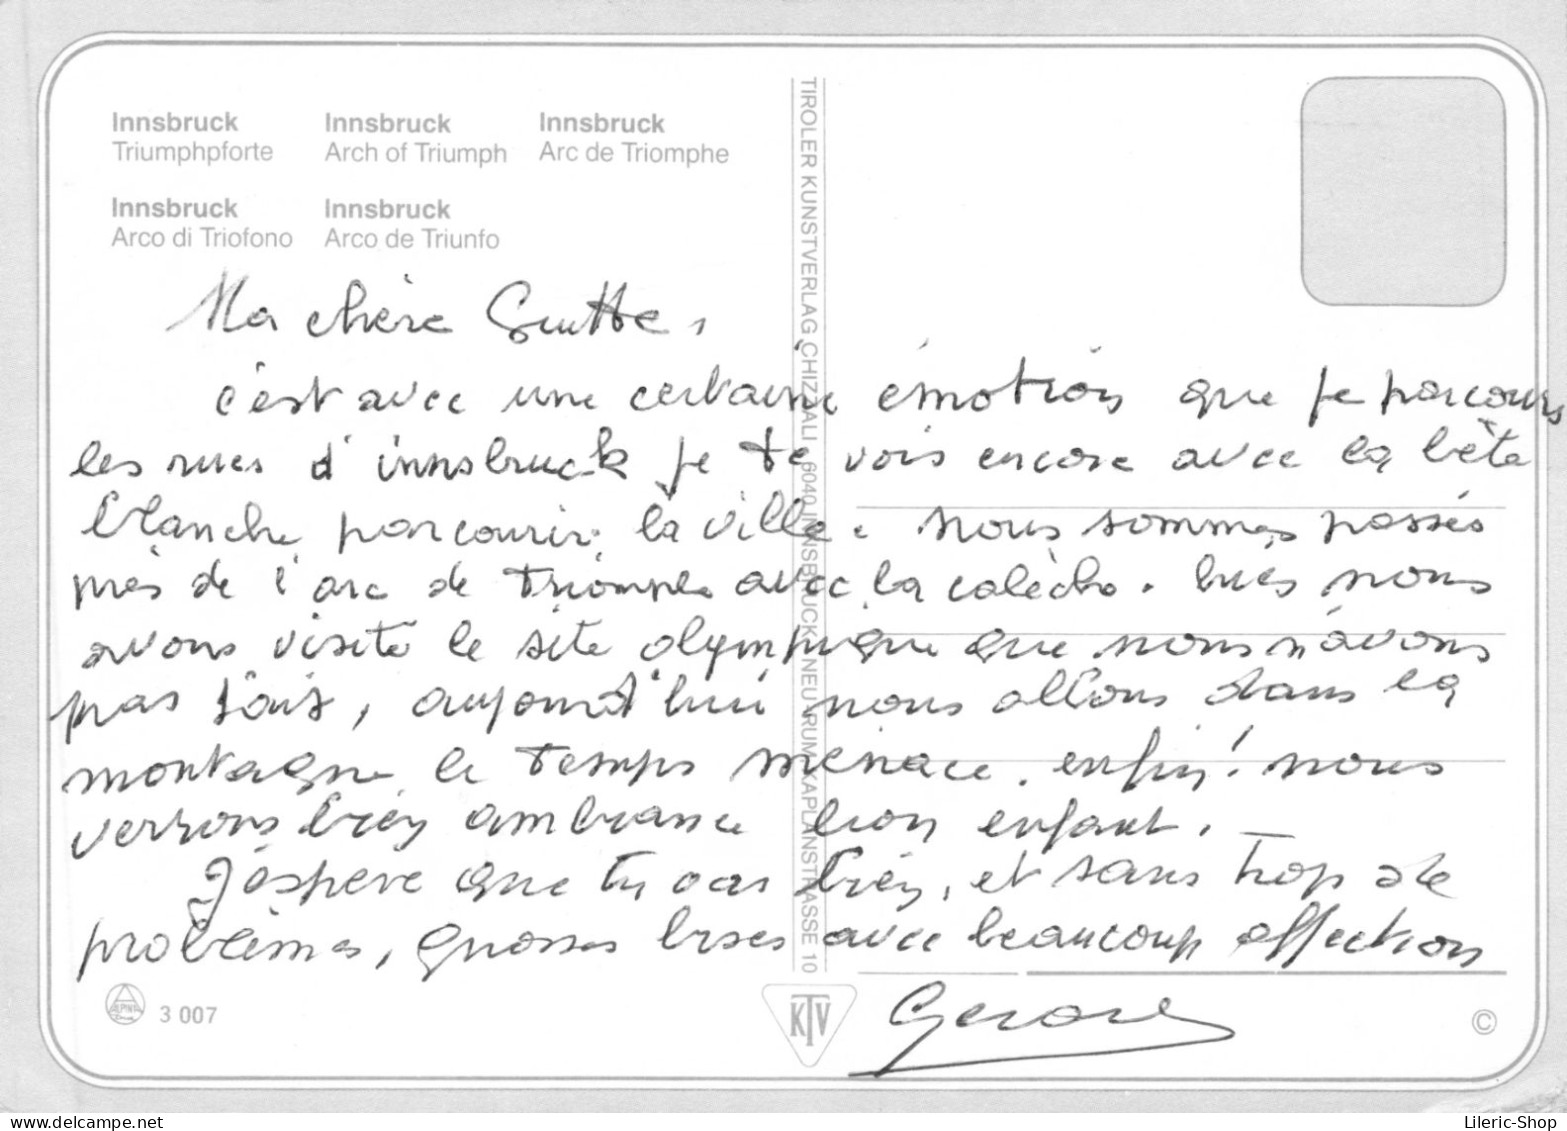 Innsbruck
Triumphpforte
Innsbruck
Arch of Triumph
Innsbruck
Arc de Triomphe
Innsbruck
Arco di Triofono
Innsbruck
Arco de Triunfo
TIROLER KUNSTVERLAG CHIZZALI, 6040 INNSBRUCK-NEU-RUM, KAPLANSTRASSE 10
Ma chère
c'est avec une certaine émotion que je parcours
les rues d'innsbruck je te vois encore avec la bête
blanche parcourir la ville. nous sommes passés
près de l'arc de triomphe avec la calèche. puis nous
avons visité le site olympique que nous n'avons
pas fait, aujourd'hui nous allons dans la
montagne le temps menace. enfin! nous
verrons bien ambiance bon enfant.
J'espère que tu vas bien, et sans trop de
problèmes, grosses bises avec beaucoup affection
Gerard
3 007
KTV
©
Lileric-Shop